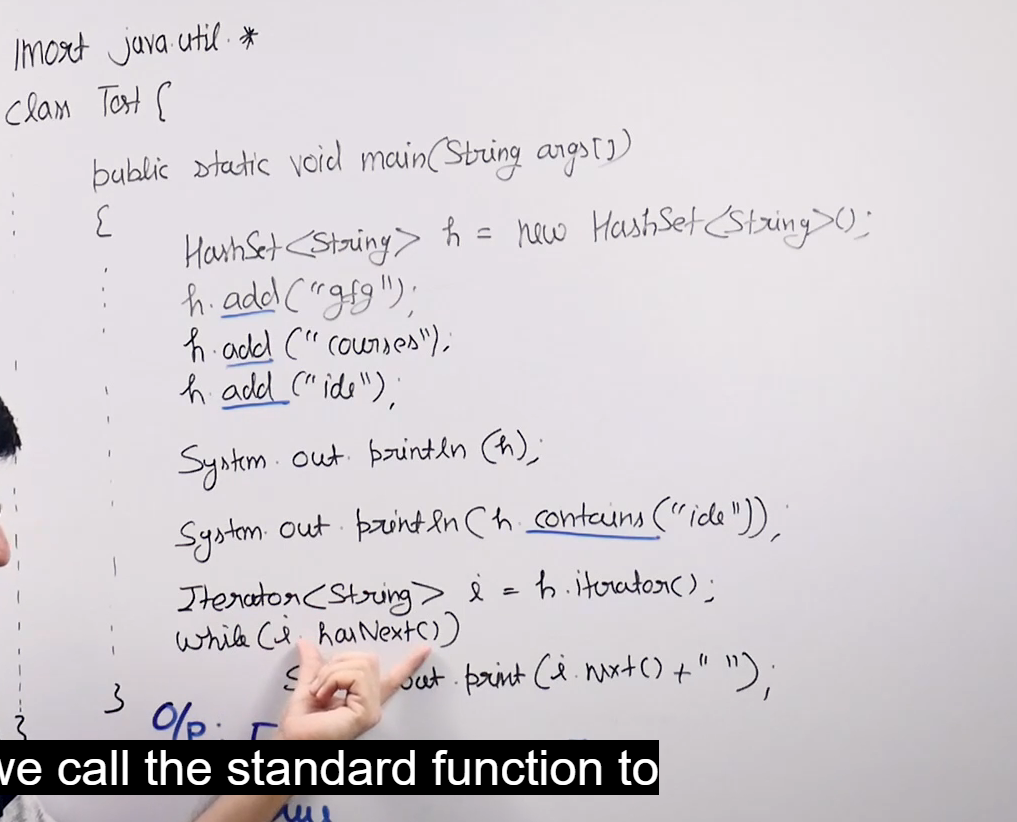 Imort java.util.*
class Test {
public static void main(String args[])
{
HashSet<String> h = new HashSet<String>();
h.add("gfg");
h.add("courses");
h.add("ide");
System.out.println(h);
System.out.println(h.contains("ide"));
Iterator<String> i = h.iterator();
while(i.hasNext())
out.print(i.next()+" ");
}
}
O/p:
we call the standard function to